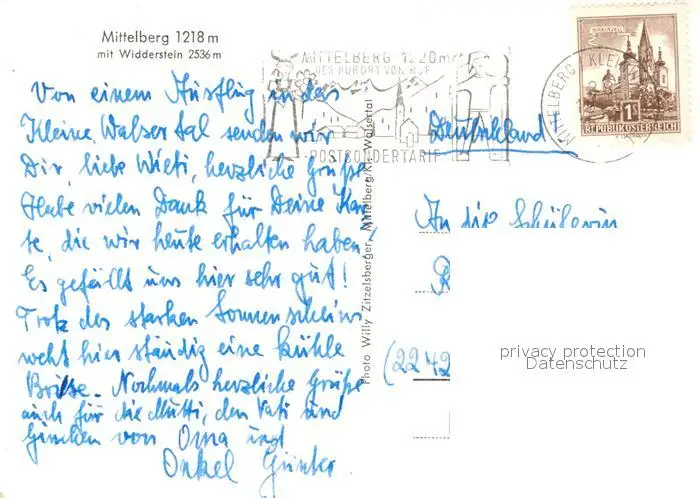 Mittelberg 1218 m
mit Widderstein 2536 m
Von einem Ausflug in das
Kleine Walser tal senden wir
Dir, liebe herzliche Grüße
Habe vielen Dank für Deine Kar-
te, die wir heute erhalten haben!
Es gefällt uns hier sehr gut!
Trotz des starken Sonnenscheins
weht hier ständig eine kühle
Brise. Nochmals herzliche Grüße
auch für die Mutti, den Vati und
von Oma und
Onkel Günter
Photo Willy Zitzelsberger, Mittelberg/Kl. Walsertal
MITTELBERG 1220m
DER KURORT VON RUF
POSTSONDERTARIF
MITTELBERG KLEIN
MARIAZELL
1S
REPUBLIK ÖSTERREICH
Deutschland
An die Schülerin
R
(2242
privacy protection
Datenschutz